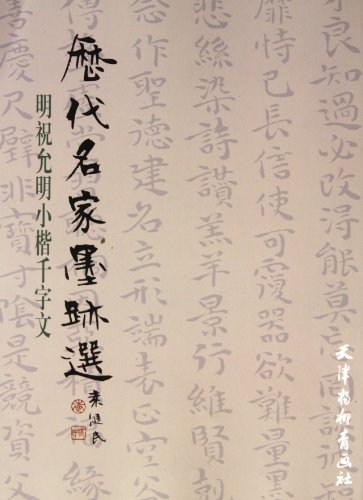 良知過必改得能莫
靡恃己長信使可覆器欲難量
悲絲染詩讃羔羊景行維賢
念作聖德建名立形端表正空谷
善慶尺璧非寶寸陰是競資父
歷代名家墨跡選
明祝允明小楷千字文
天津杨柳青画社